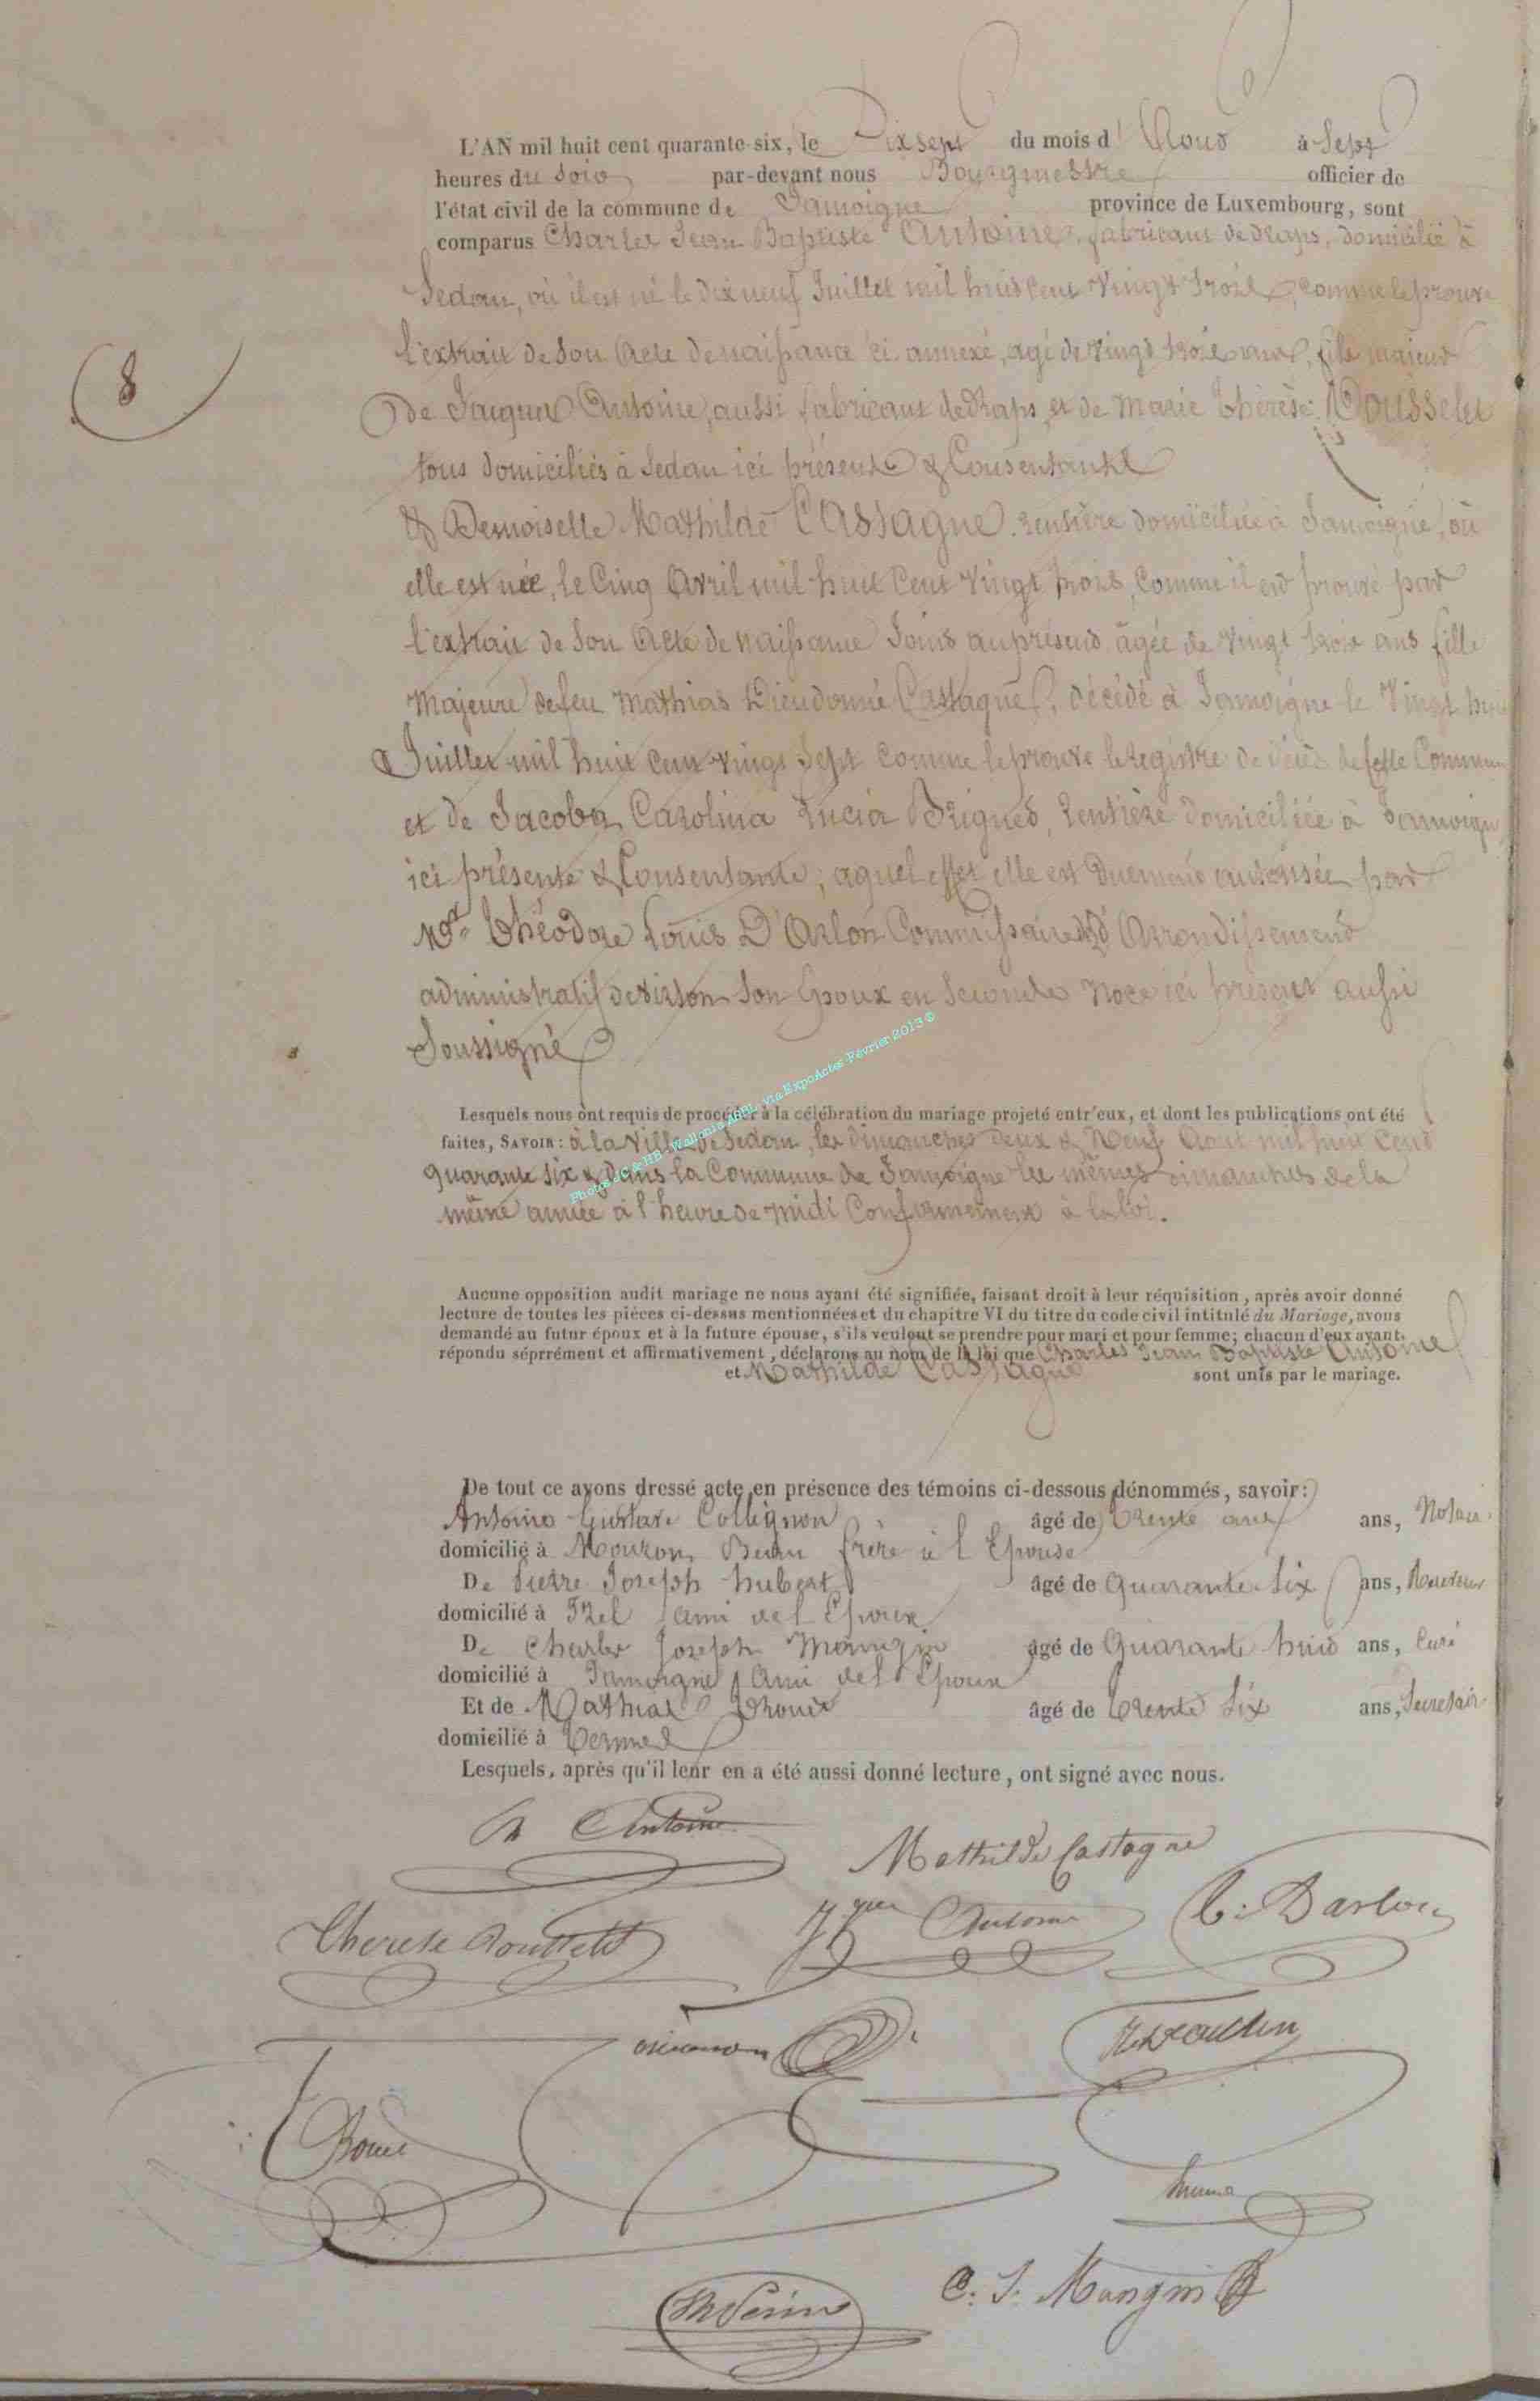 L'AN mil huit cent quarante-six, le Dix sept du mois d'Aout à Sept
heures du soir par-devant nous Bourgmestre officier de
l'état civil de la commune de Jamoigne province de Luxembourg, sont
comparus Charles Jean Baptiste Antoine, fabricant de draps, domicilié à
Sedan, où il est né le dix neuf Juillet mil huit cent vingt trois, comme le prouve
l'extrait de son acte de naissance ci annexé, agé de vingt trois ans, fils majeur
8
de Jacques Antoine, aussi fabricant de draps, et de Marie Thérèse Rousselet
tous domiciliés à Sedan ici présents & Consentants
& Demoiselle Mathilde Castagne. rentière domiciliée à Jamoigne, où
elle est née, le Cinq Avril mil huit Cent vingt trois, comme il est prouvé par
l'extrait de son acte de naissance joint au présent, âgée de vingt trois ans fille
majeure de feu Mathias Dieudonné Castagne, décédé à Jamoigne le vingt huit
Juillet mil huit cent vingt sept comme le prouve le registre de décès de cette Commune
et de Jacoba Carolina Lucia Brigned, rentière domiciliée à Jamoigne
ici présente & Consentante, a quel effet elle est Duement autorisée par
Mr Théodore Louis D'Arlon Commissaire d'Arrondissement
administratif de Virton son Epoux en seconde Noce ici présent aussi
Soussigné
Lesquels nous ont requis de procéder à la célébration du mariage projeté entr'eux, et dont les publications ont été
faites, SAVOIR: à la Ville de Sedan, les dimanches deux & Neuf Aout mil huit Cent
quarante six & dans la Commune de Jamoigne les mêmes dimanches de la
même année à l'heure de midi Conformement à la loi.
Photos JC & HB - Wallonia ASBL - via ExpoActes Février 2013 ©
Aucune opposition audit mariage ne nous ayant été signifiée, faisant droit à leur réquisition, après avoir donné
lecture de toutes les pièces ci-dessus mentionnées et du chapitre VI du titre du code civil intitulé du Mariage, avons
demandé au futur époux et à la future épouse, s'ils veulent se prendre pour mari et pour femme; chacun d'eux ayant
répondu séprrément et affirmativement, déclarons au nom de la loi que Charles Jean Baptiste Antoine
et Mathilde Castagne sont unis par le mariage.
De tout ce avons dressé acte en présence des témoins ci-dessous dénommés, savoir:
Antoine Gustave Collignon âgé de Trente ans ans, Notaire
domicilié à Mouzon Beau frère à l'Epouse
De Pierre Joseph hubert âgé de Quarante Six ans,
domicilié à Izel ami de l'Epoux
De Charles Joseph Mangin âgé de Quarante huit ans, Curé
domicilié à Jamoigne Ami de l'Epoux
Et de Mathias âgé de Trente Six ans, Secretaire
domicilié à Termes
Lesquels, après qu'il leur en a été aussi donné lecture, ont signé avec nous.
Ch Antoine
Mathilde Castagne
Therese Rousselet Jques Antoine T: Darlon
C. J. Mangin